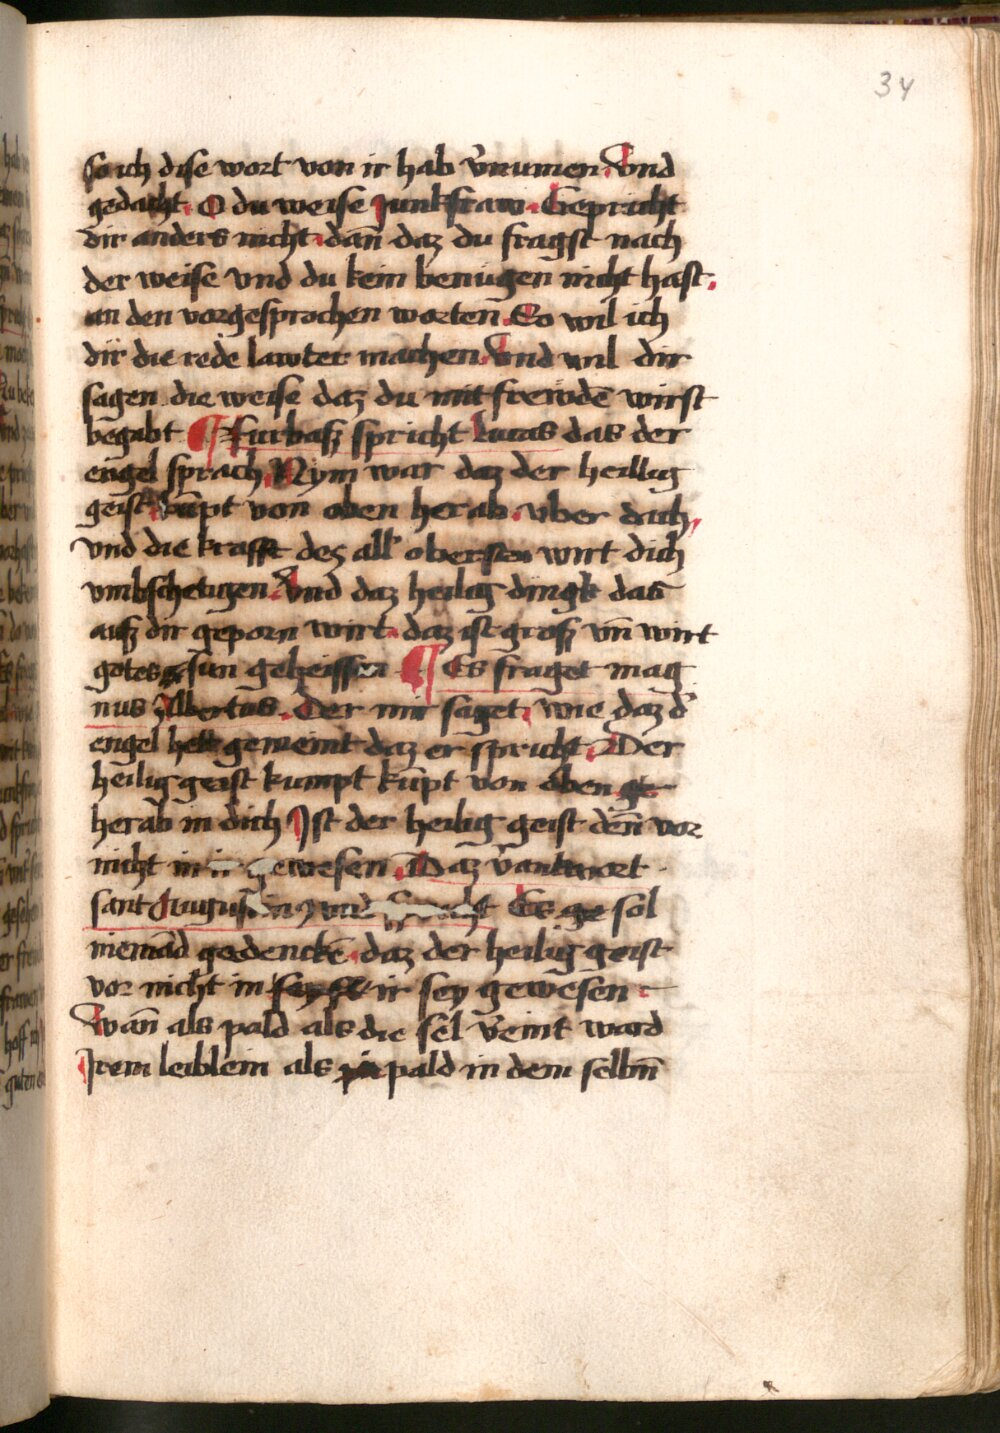 34
So ich dise wort von ir hab v̄numen. Vnd
gedacht. O du weise Junkfraw. Gepricht
dir anders nicht. dan̄ daz du fragst nach
der weise vnd du kein benügen nicht hast.
an den vorgesprochen worten̄. So wil ich
dir die rede lawter machen. Vnd wil dir
sagen die weise daz du mit frewdē wirst
begabt ¶ Furbasz spricht lucas das der
engel sprach Nym war daz der heillig
geist kūpt von oben herab. vber dich,
vnd die krafft dez all obersten wirt dich
vmbschetigen. Vnd daz heilig dingk das
ausz dir geporn wirt. daz ist grosz vn̄ wirt
gotes sun geheissen ¶ Es fraget mag
nus Albertus. Der mir saget, wie daz d̓
engel hett gemeint daz er spricht. Der
heilig geist kumpt kūpt von oben ge
herab in dich Ist der heilig geist den̄ vor
nicht in ir gewesen. Daz v̄antwort
sant Augustin vnd spricht Es ge sol
niemād gedenckē. daz der heilig geist
vor nicht in ir sey gewesen
Wan̄ als pald als die sel v̄eint ward
Irem leiblein als pald in dem selbn̄